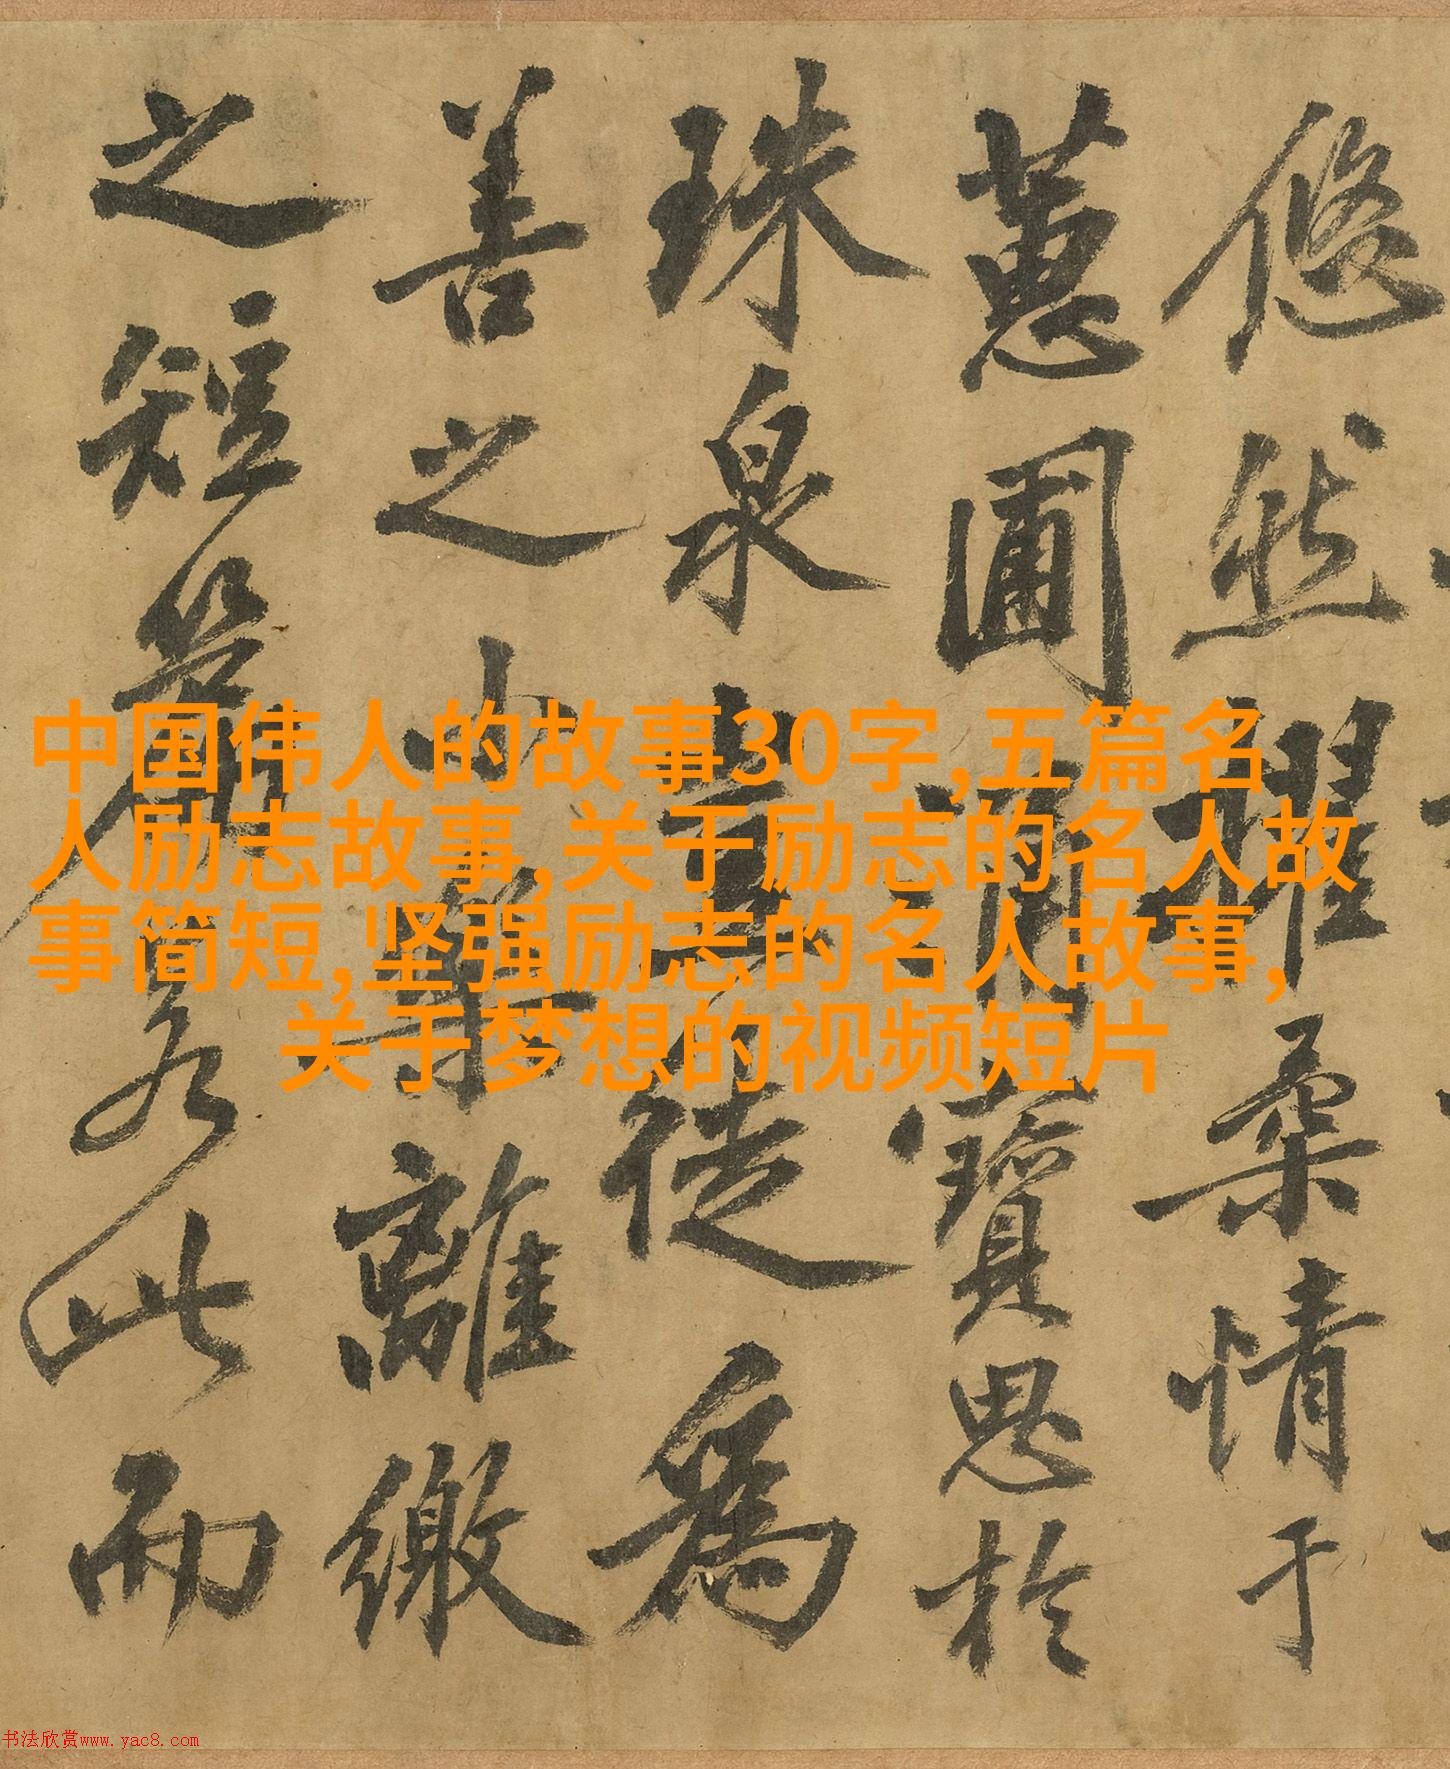 悠然擢柔情于
蕙圃涌寶思於
珠泉豈徒為
善之小樂離繳
之短若此而
中国伟人的故事30字,五篇名
人励志故事,关于励志的名人故
事简短,坚强励志的名人故事,
关于梦想的视频短片
书法欣赏www.yac8.com